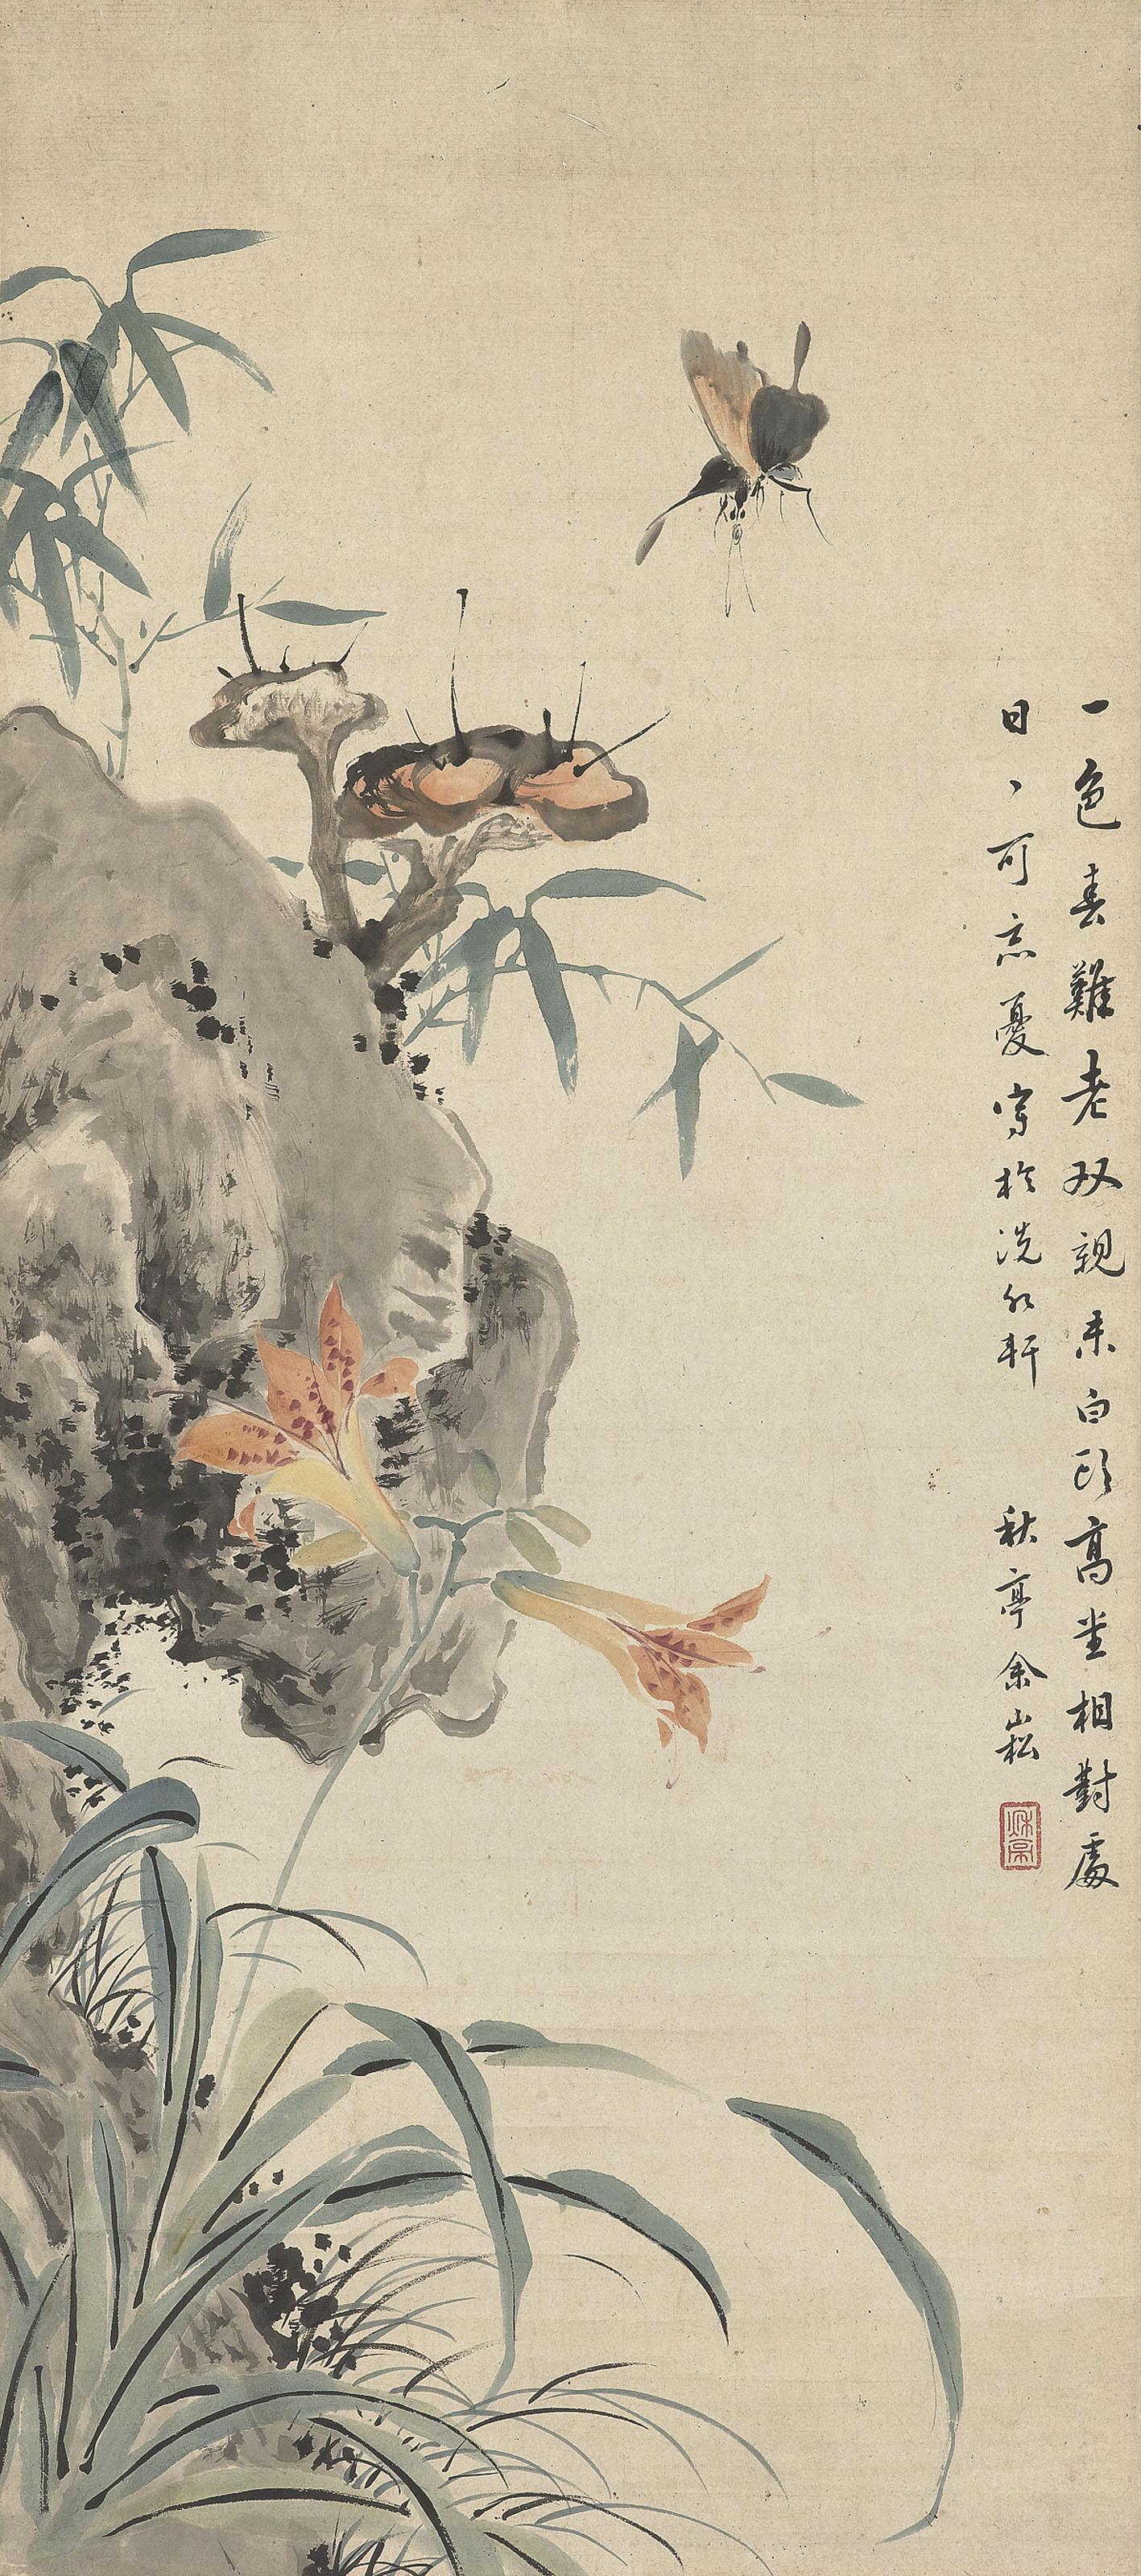 一色春難老双親未白頭高堂相對處
日、可忘憂寫於洗軒
秋亭余崧
秋亭